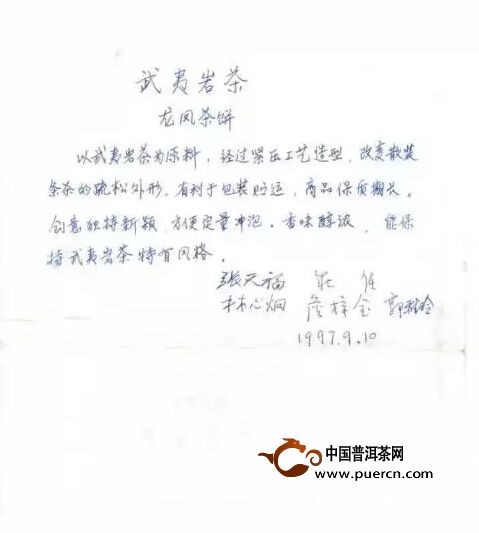 武夷岩茶
龙凤茶饼
以武夷岩茶为原料，经过紧压工艺造型，改变散装
条茶的疏松外形，有利于包装贮运，商品保质期长。
创意独特新颖，方便定量冲泡，香味醇浓，能保
持武夷岩茶特有风格。
张天福 庄任
林心炯 詹梓金 郭雅玲
1997.9.10
中国普洱茶网
www.puercn.com